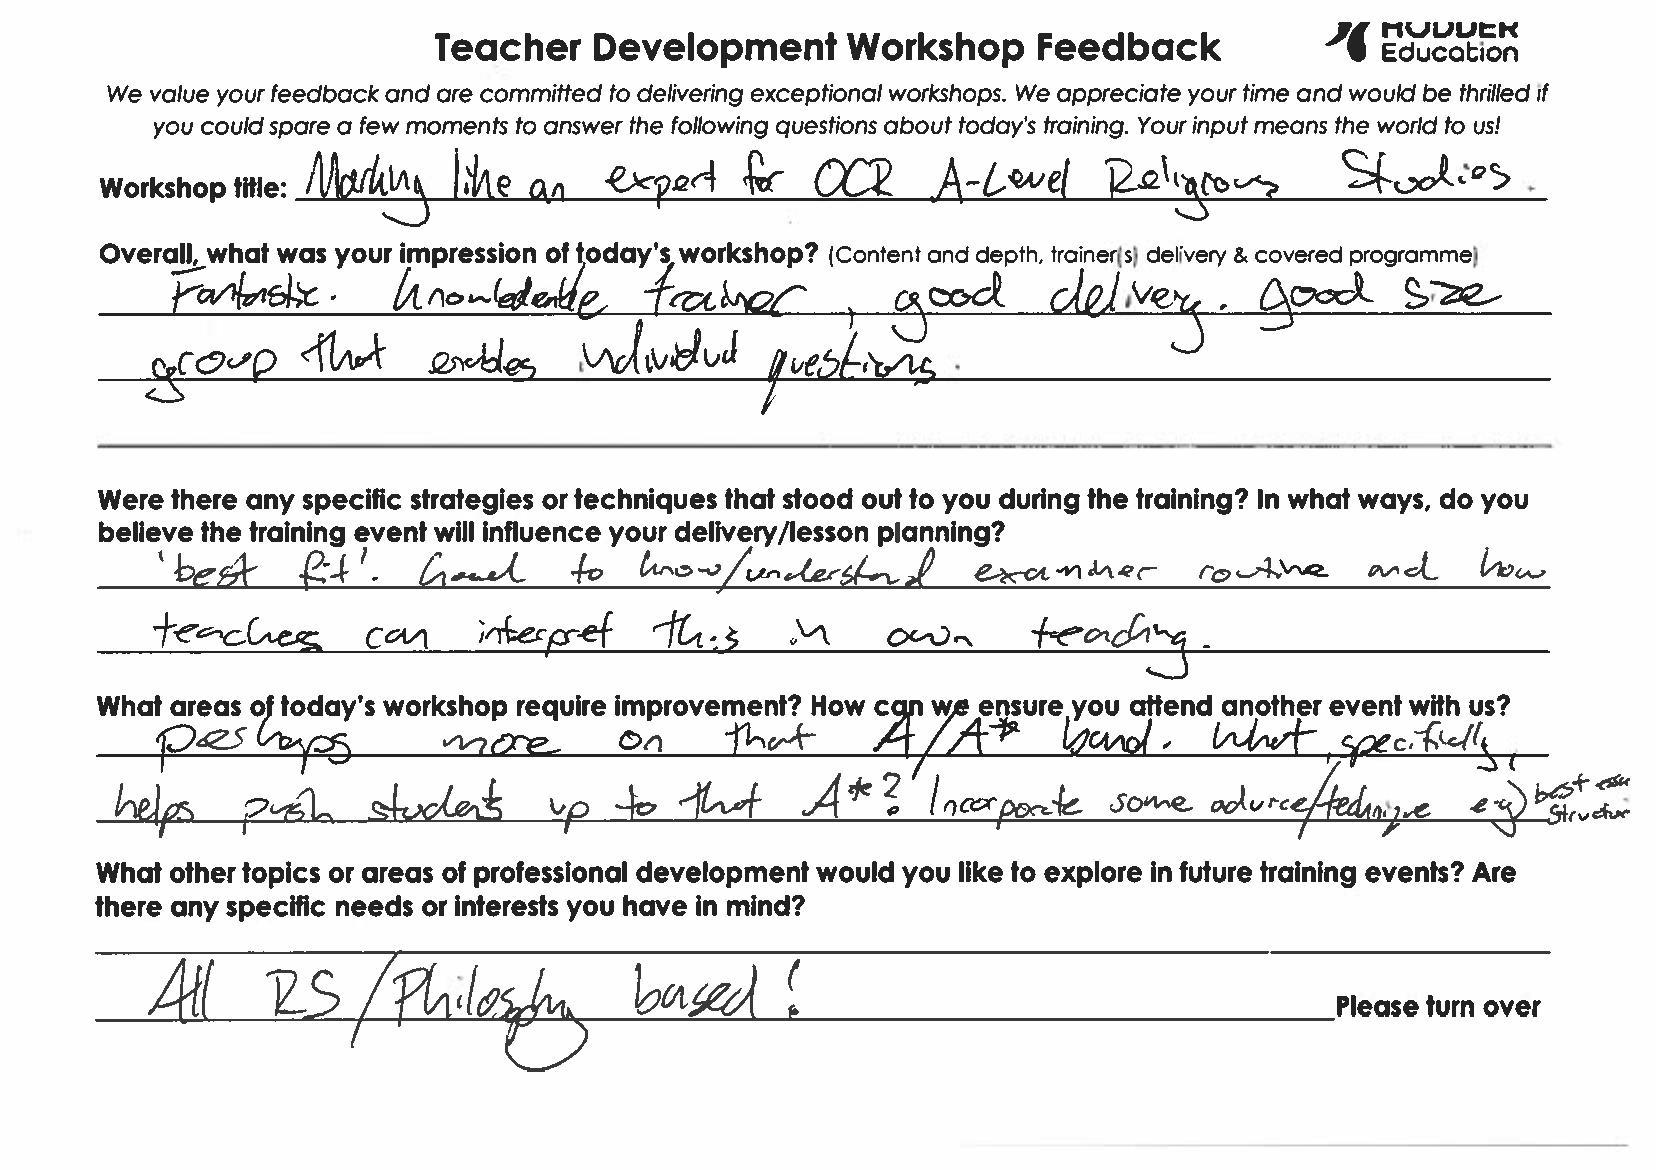 Teacher Development Workshop Feedback
HODDER
Education
We value your feedback and are committed to delivering exceptional workshops. We appreciate your time and would be thrilled if
you could spare a few moments to answer the following questions about today's training. Your input means the world to us!
Workshop title: Marking like an expert for OCR A-Level Religious Studies.
Overall, what was your impression of today's workshop? (Content and depth, trainer(s) delivery & covered programme)
Fantastic. Knowledgeable trainer, good delivery. Good size
group that enables individual questions.
Were there any specific strategies or techniques that stood out to you during the training? In what ways, do you
believe the training event will influence your delivery/lesson planning?
'best fit'. Good to know/understand examiner routine and how
teachers can interpret this in own teaching.
What areas of today's workshop require improvement? How can we ensure you attend another event with us?
Perhaps more on that A/A* band. What, specifically,
helps push students up to that A*? Incorporate some advice/technique eg) best
structure
What other topics or areas of professional development would you like to explore in future training events? Are
there any specific needs or interests you have in mind?
All RS/Philosophy based!
Please turn over